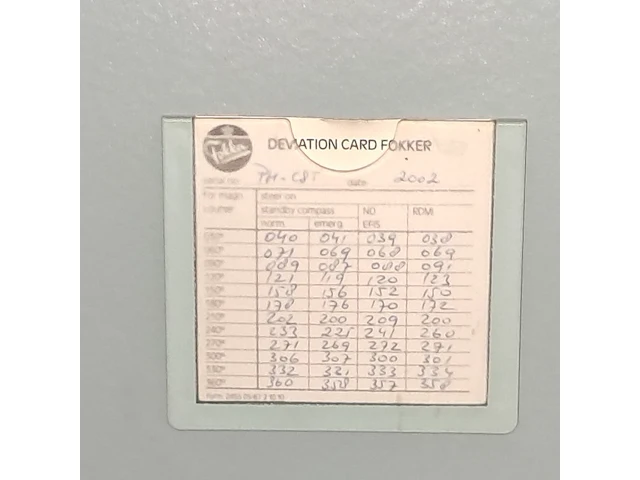 Fokker
DEVIATION CARD FOKKER
serial no: PH-CST date: 2002
for magn. steer on
course standby compass ND RDMI
norm. emerg. EFIS
030° 040 041 039 038
060° 071 069 068 069
090° 089 087 088 091
120° 121 119 120 123
150° 158 156 152 150
180° 178 176 170 172
210° 202 200 209 200
240° 233 225 241 260
270° 271 269 272 271
300° 306 307 300 301
330° 332 331 333 334
360° 360 358 357 358